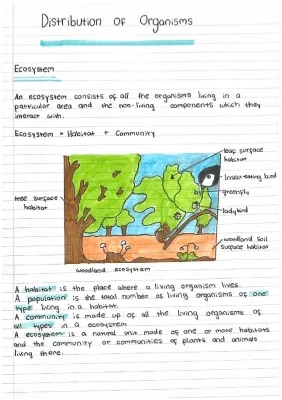 Distribution of Organisms
Ecosystem
An ecosystem consists of all the organisms living in a
particular area and the non-living components which they
interact with.
Ecosystem = Habitat + Community
leaf surface
habitat
Insect-eating bird
greenfly
ladybird
tree surface
habitat
woodland soil
surface habitat
woodland ecosystem
A habitat is the place where a living organism lives.
A population is the total number of living organisms of one
type living in a habitat.
A community is made up of all the living organisms of
all types in a ecosystem
A ecosystem is a natural unit made of one or more habitats
and the community or communities of plants and animals
living there.